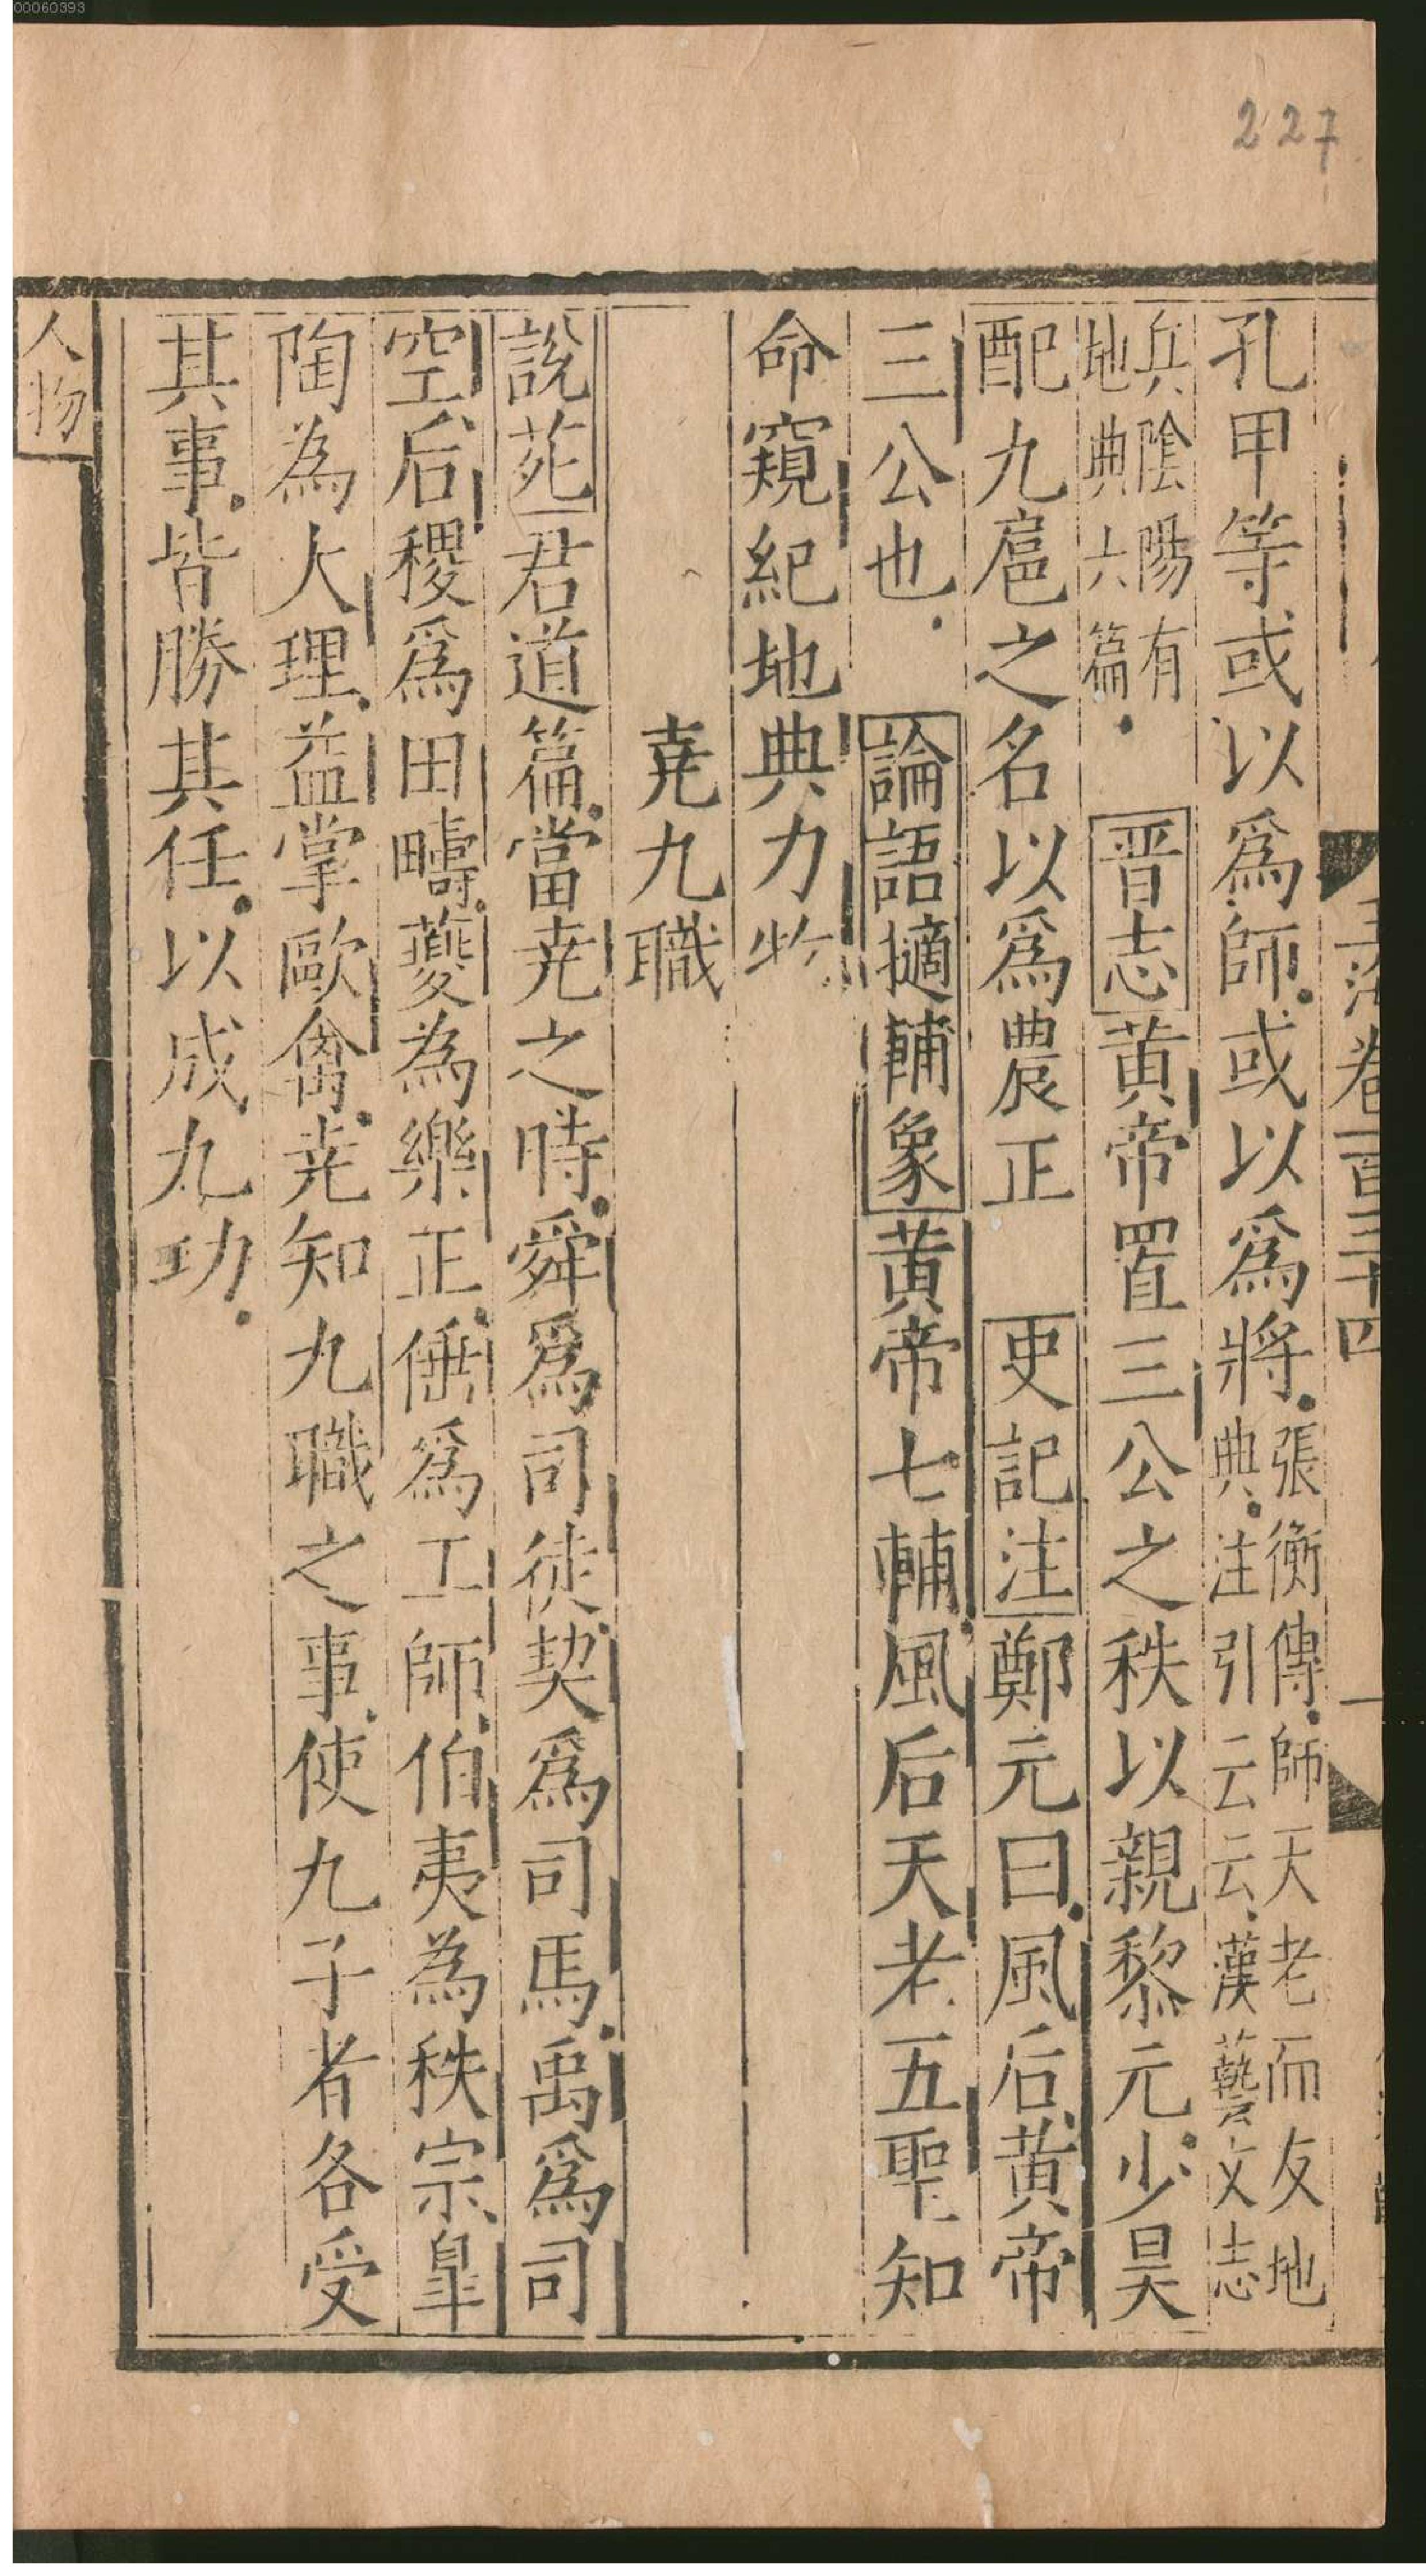 00060393
227
玉海卷一百三十四
孔甲等或以爲師或以爲將張衡傳師天老而友地
典注引云云漢藝文志
兵陰陽有
地典六篇晋志黄帝置三公之秩以親黎元少昊
配九扈之名以爲農正 史記注鄭元曰風后黄帝
三公也 論語擿輔象黄帝七輔風后天老五聖知
命窺紀地典力牧
尭九職
說苑君道篇當尭之時舜爲司徒契爲司馬禹爲司
空后稷爲田疇夔為樂正倕爲工師伯夷為秩宗臯
陶為大理益掌歐禽尭知九職之事使九子者各受
其事皆勝其任以成九功
人物